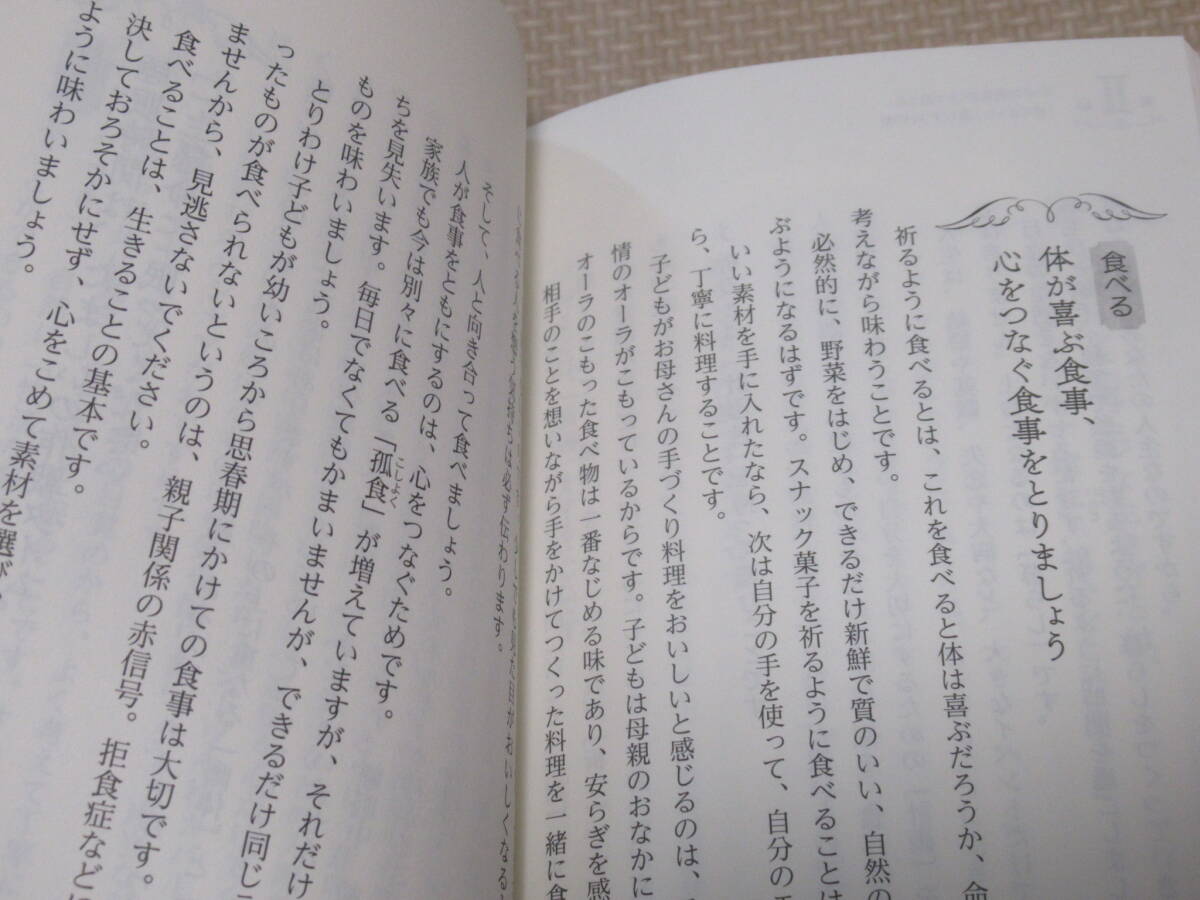 食べる
体が喜ぶ食事、
心をつなぐ食事をとりましょう
祈るように食べるとは、これを食べると体は喜ぶだろうか、命
考えながら味わうことです。
必然的に、野菜をはじめ、できるだけ新鮮で質のいい、自然の
ぶようになるはずです。スナック菓子を祈るように食べることは
いい素材を手に入れたなら、次は自分の手を使って、自分の
ら、丁寧に料理することです。
子どもがお母さんの手づくり料理をおいしいと感じるのは、
情のオーラがこもっているからです。子どもは母親のおなかに
オーラのこもった食べ物は一番なじめる味であり、安らぎを感
相手のことを想いながら手をかけてつくった料理を一緒に食
は必ず伝わります。
そして、人と向き合って食べましょう。
人が食事をともにするのは、心をつなぐためです。
家族でも今は別々に食べる「孤食」が増えていますが、それだけ
ちを見失います。毎日でなくてもかまいませんが、できるだけ同じ
ものを味わいましょう。
とりわけ子どもが幼いころから思春期にかけての食事は大切です。
ったものが食べられないというのは、親子関係の赤信号。拒食症など
ませんから、見逃さないでください。
食べることは、生きることの基本です。
決しておろそかにせず、心をこめて素材を選び、
ように味わいましょう。